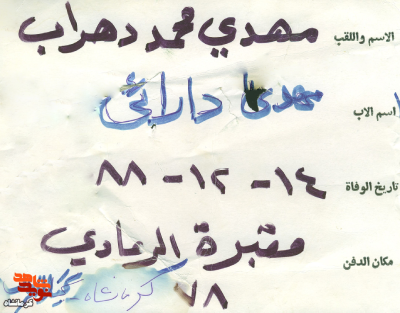 الاسم واللقب مهدي محمد دهراب
اسم الاب مهدی دارائی
تاريخ الوفاة ١٤ - ١٢ - ٨٨
مكان الدفن مقبرة الرمادي
٧٨
کرمانشاه
کرمانشاه